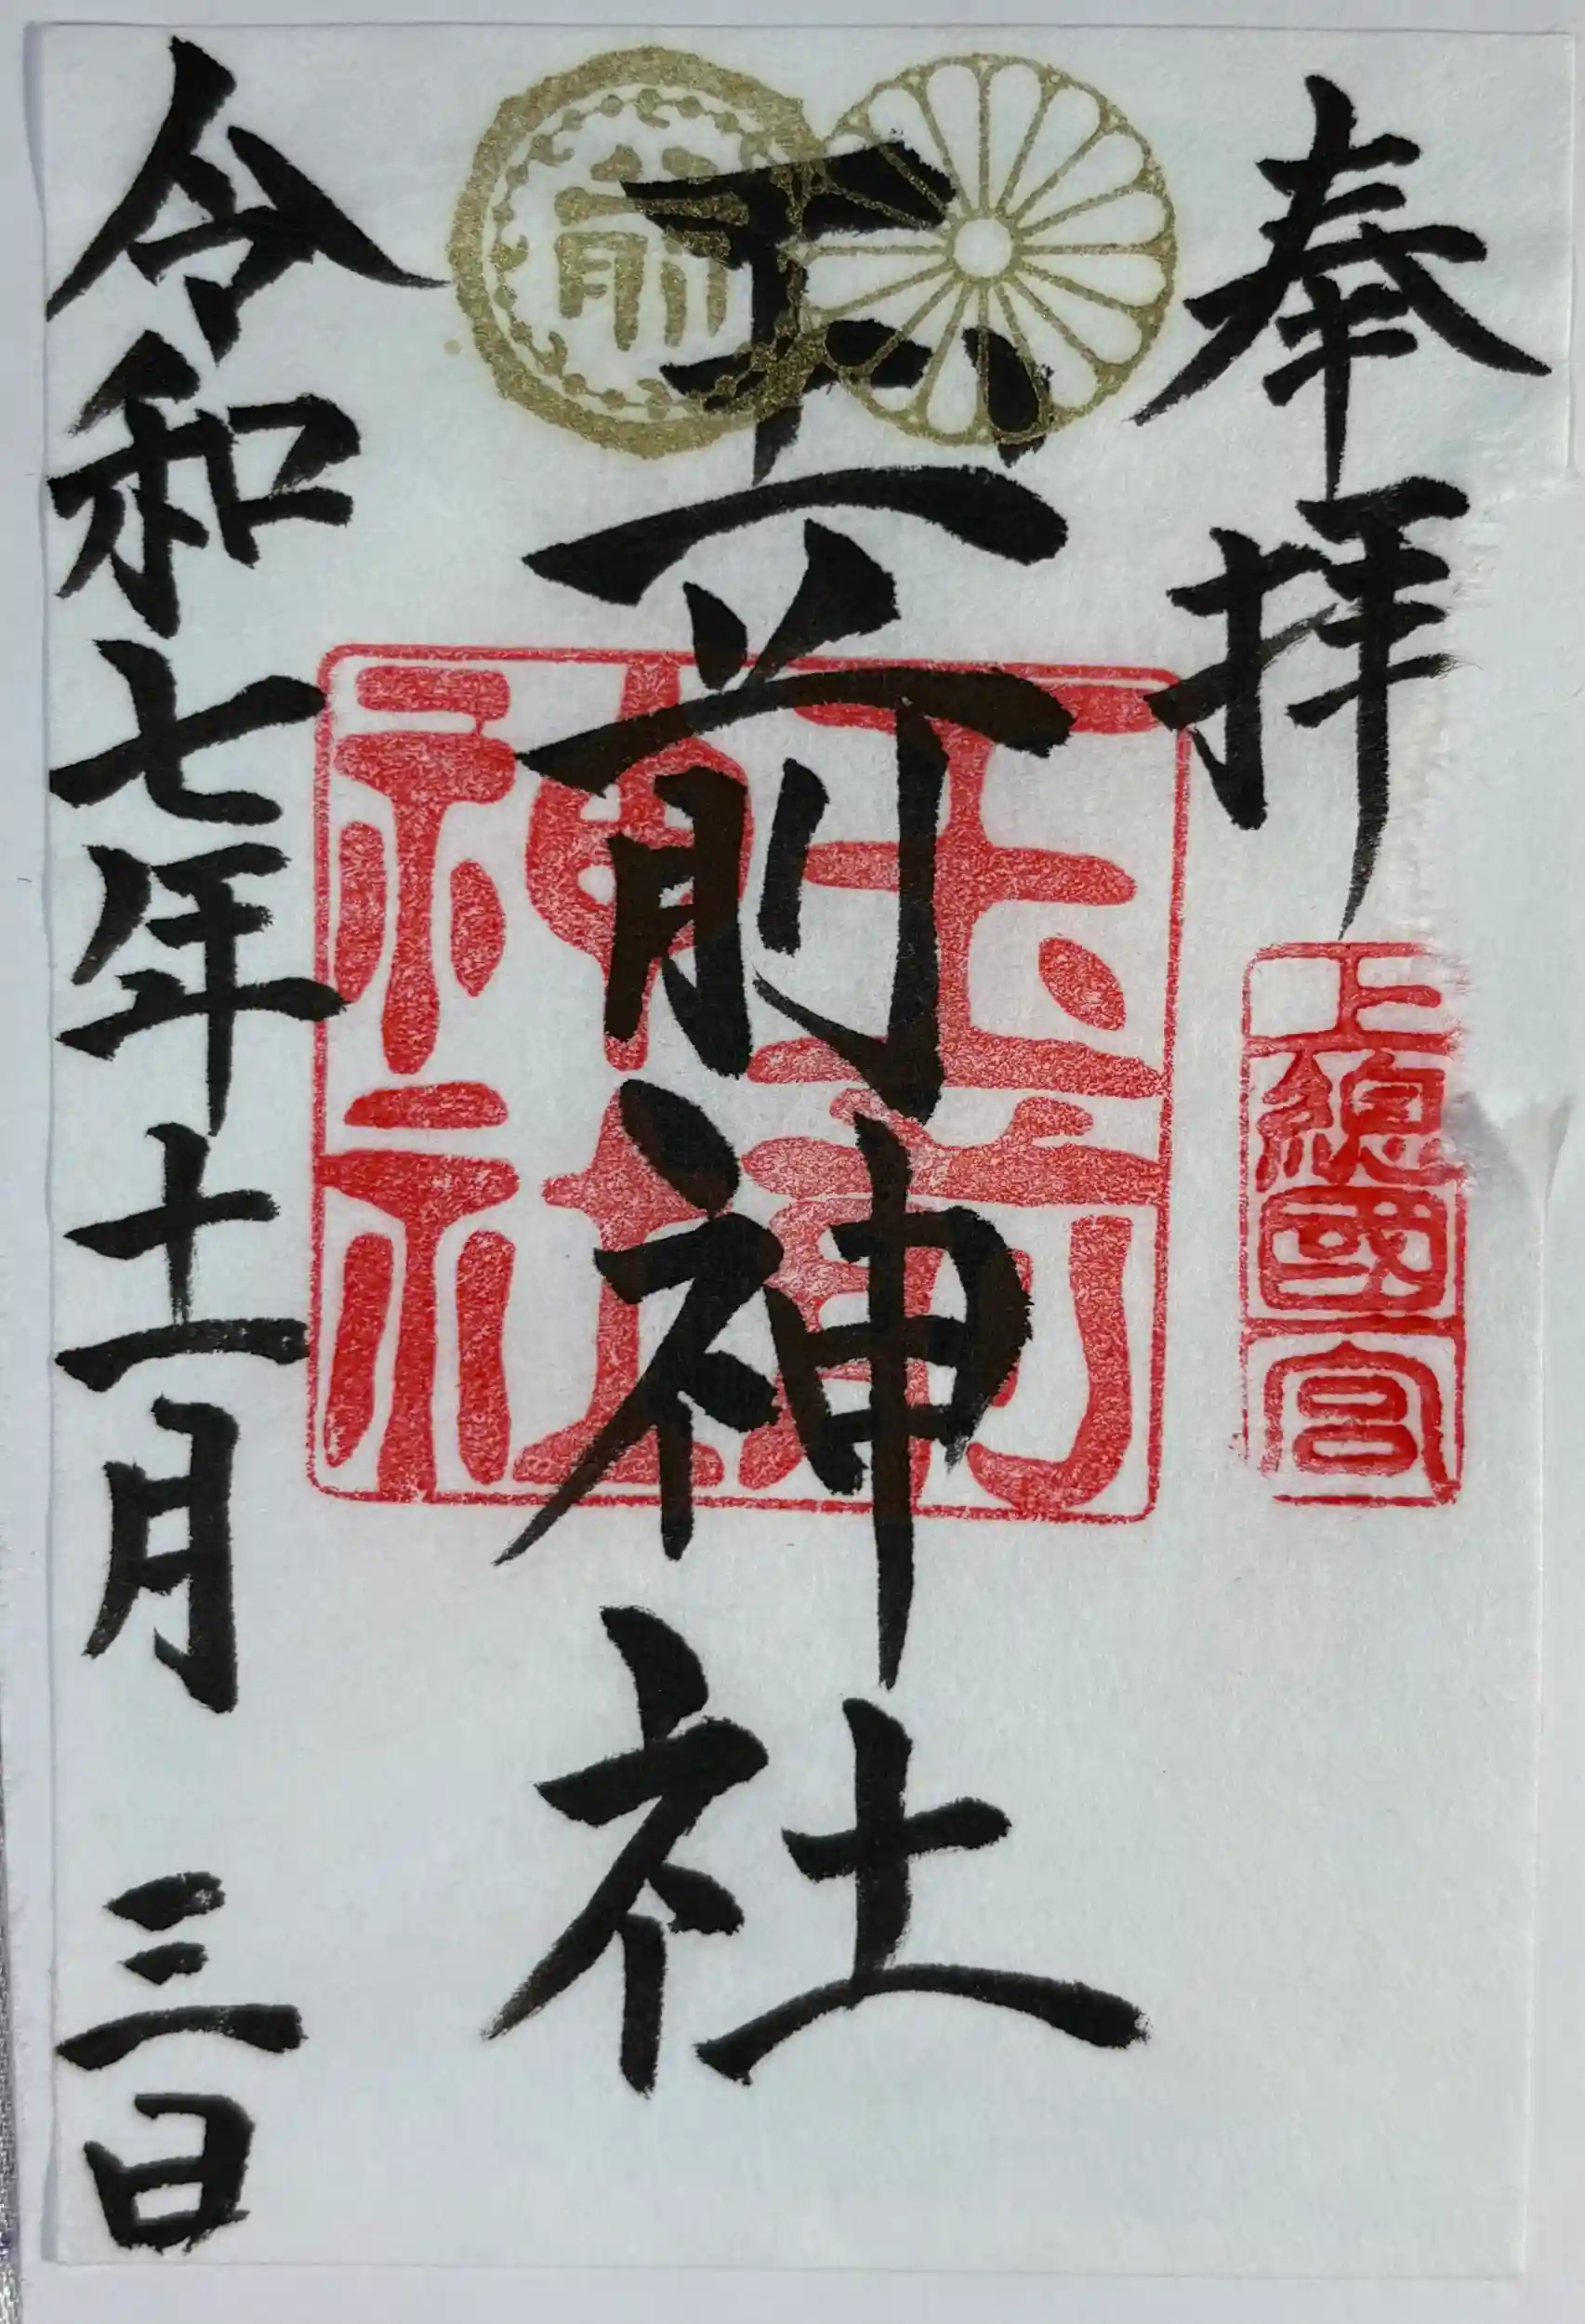 奉拝
上總國一宮
玉前神社
玉前神社
前
令和七年十一月三日